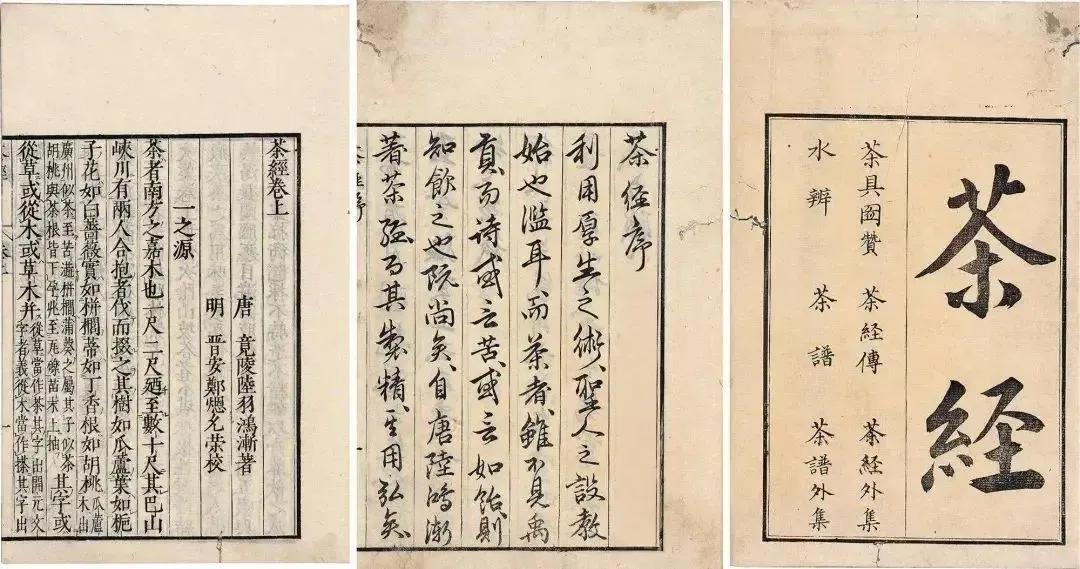 茶経
茶具啚贊 茶経傳 茶経外集
水辨 茶譜 茶譜外集
茶経序
利用厚生之術聖人之設教
始也濫耳而茶者雖不見禹
貢而詩或云苦或云如飴則
知飲之也既尚矣自唐陸鴻漸
著茶経而其製精其用弘矣
茶經卷上
唐 竟陵陸羽鴻漸著
明 晉安鄭熜允榮校
一之源
茶者南方之嘉木也一尺二尺廼至數十尺其巴山
峽川有兩人合抱者伐而掇之其樹如瓜蘆葉如梔
子花如白薔薇實如栟櫚蒂如丁香根如胡桃瓜蘆木出
廣州似茶至苦澁栟櫚蒲葵之屬其子似茶胡桃與茶根皆下孕兆至瓦礫苗木上抽其字或
從草或從木或草木并從草當作茶其字出開元文字者義從木當作搽其字出